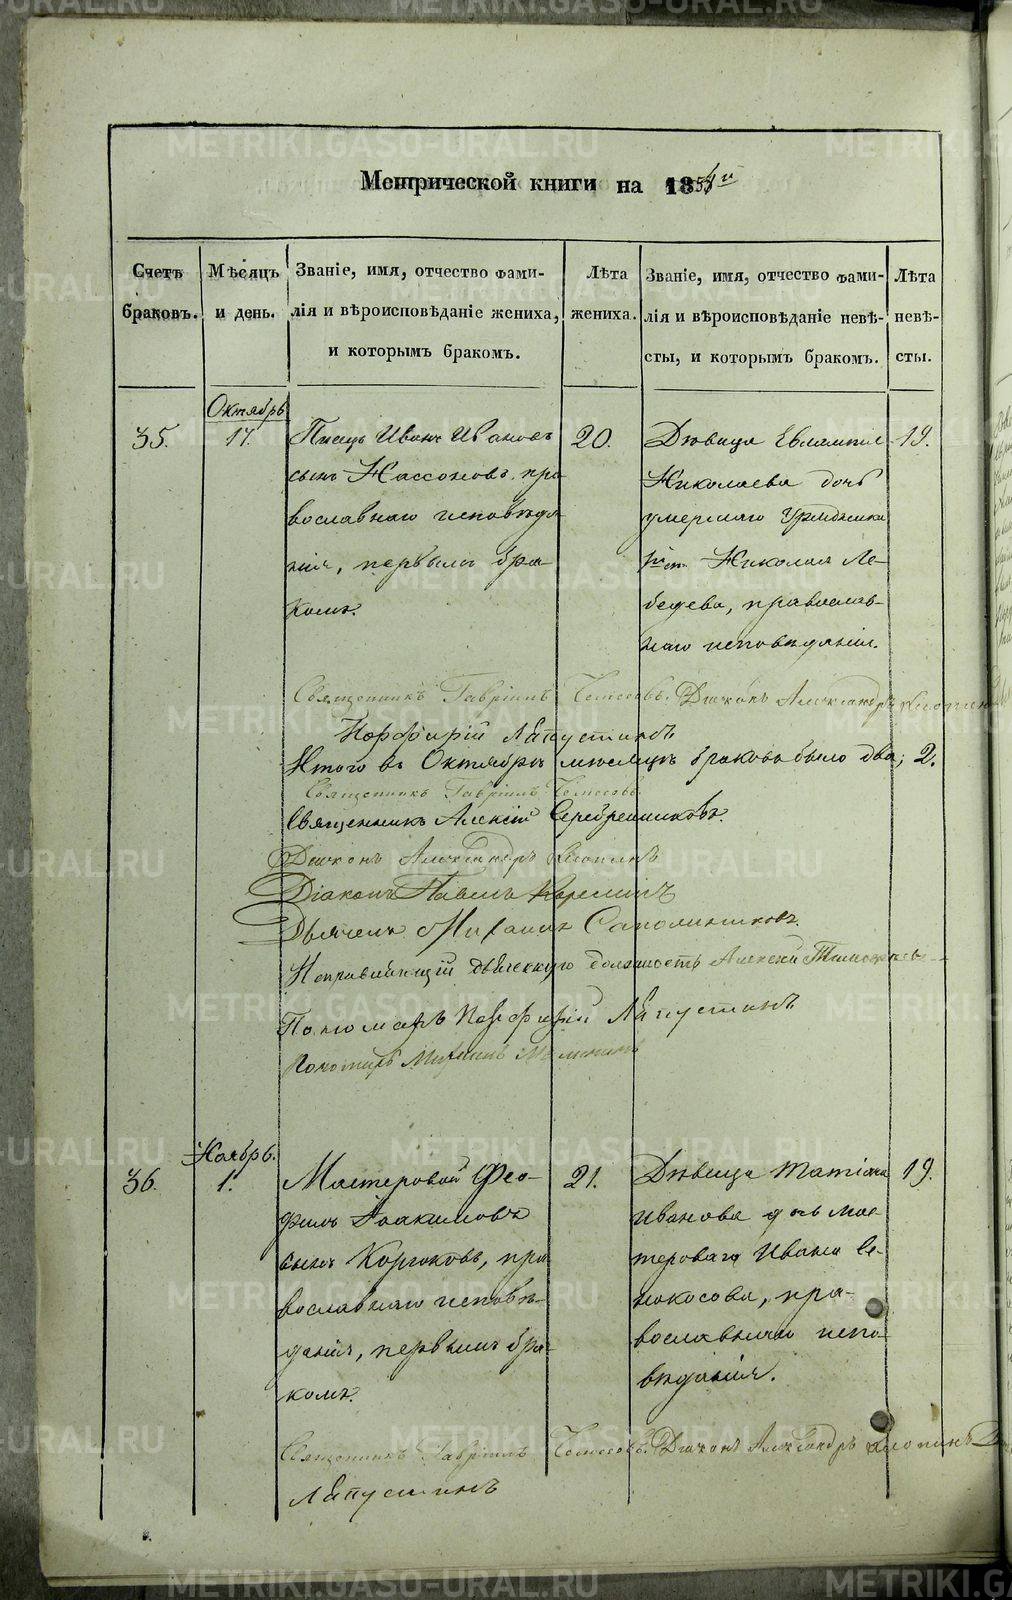 Метрической книги на 185
Счетъ браковъ.
Мѣсяцъ и день.
Званіе, имя, отчество фами-
лія и вѣроисповѣданіе жениха,
и которымъ бракомъ.
Лѣта жениха.
Званіе, имя, отчество фами-
лія и вѣроисповѣданіе невѣ-
сты, и которымъ бракомъ.
Лѣта невѣ-
сты.
Октябрь
35.
17.
Писецъ Иванъ Ивановъ
сынъ Нассоновъ, пра
вославнаго исповѣда
нія, первымъ бра-
комъ.
20.
Дѣвица Евлампія
Николаева дочь
умершаго Урядника
Николая Ле-
бедева, православ-
наго исповѣданія.
19.
Священникъ Гавріилъ Діаконъ Александръ
Порфирій Лапустинъ
Итого въ Октябрѣ мѣсяцѣ браковъ было два; 2.
Священникъ Гавріилъ
Священникъ Алексій Серебренниковъ.
Діаконъ Александръ
Діаконъ Павелъ
Дьячекъ Михаилъ
Исправляющій дьяческую должность Алексій
Пономарь Порфирій Лапустинъ
Пономарь Михаилъ
Ноябрь.
36.
1.
Мастеровой Ѳео-
филъ Іоакимовъ
сынъ Корюковъ, пра
вославнаго исповѣ-
данія, первымъ бра-
комъ.
21.
Дѣвица Татіана
Иванова дочь мас-
тероваго Ивана Се-
нокосова, пра-
вославнаго испо-
вѣданія.
19.
Священникъ Гавріилъ Діаконъ Александръ
Лапустинъ
METRIKI.GASO-URAL.RU